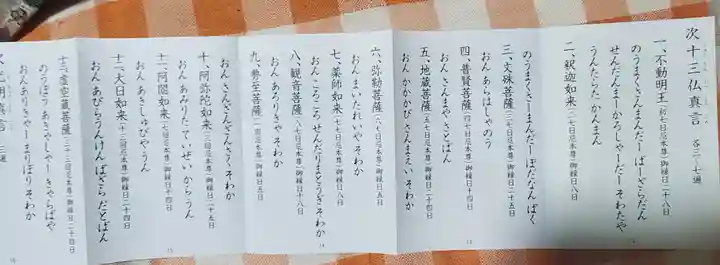 次十三仏真言 各三~七遍
一、不動明王(初七日忌本尊)御縁日二十八日
のうまくさんまんだーばーざらだん
せんだんまーかろしゃーだーそわたや
うんたらたかんまん
二、釈迦如来(二七日忌本尊)御縁日八日
のうまくさーまんだーぼだなんばく
三、文殊菩薩(三七日忌本尊)御縁日二十五日
おんあらはしゃのう
四、普賢菩薩(四七日忌本尊)御縁日二十四日
おんさんまやさとばん
五、地蔵菩薩(五七日忌本尊)御縁日二十四日
おんかかかびさんまえいそわか
六、弥勒菩薩(六七日忌本尊)御縁日五日
おんまいたれいやそわか
七、薬師如来(七七日忌本尊)御縁日八日
おんころころせんだりまとうぎそわか
八、観音菩薩(百ヶ日忌本尊)御縁日十八日
おんあろりきゃそわか
九、勢至菩薩(一周忌本尊)御縁日
おんさんざんざんさくそわか
十、阿弥陀如来(三回忌本尊)御縁日十五日
おんあみりたていぜいからうん
十一、阿閦如来(七回忌本尊)御縁日十四日
おんあきしゅびやうん
十二、大日如来(十三回忌本尊)御縁日二十四日
おんあびらうんけんばざらだとばん
十三、虚空蔵菩薩(三十三回忌本尊)御縁日二十四日
のうぼうあきゃしゃーきゃらばや
おんありきゃーまりぼりそわか
次光明真言 三遍